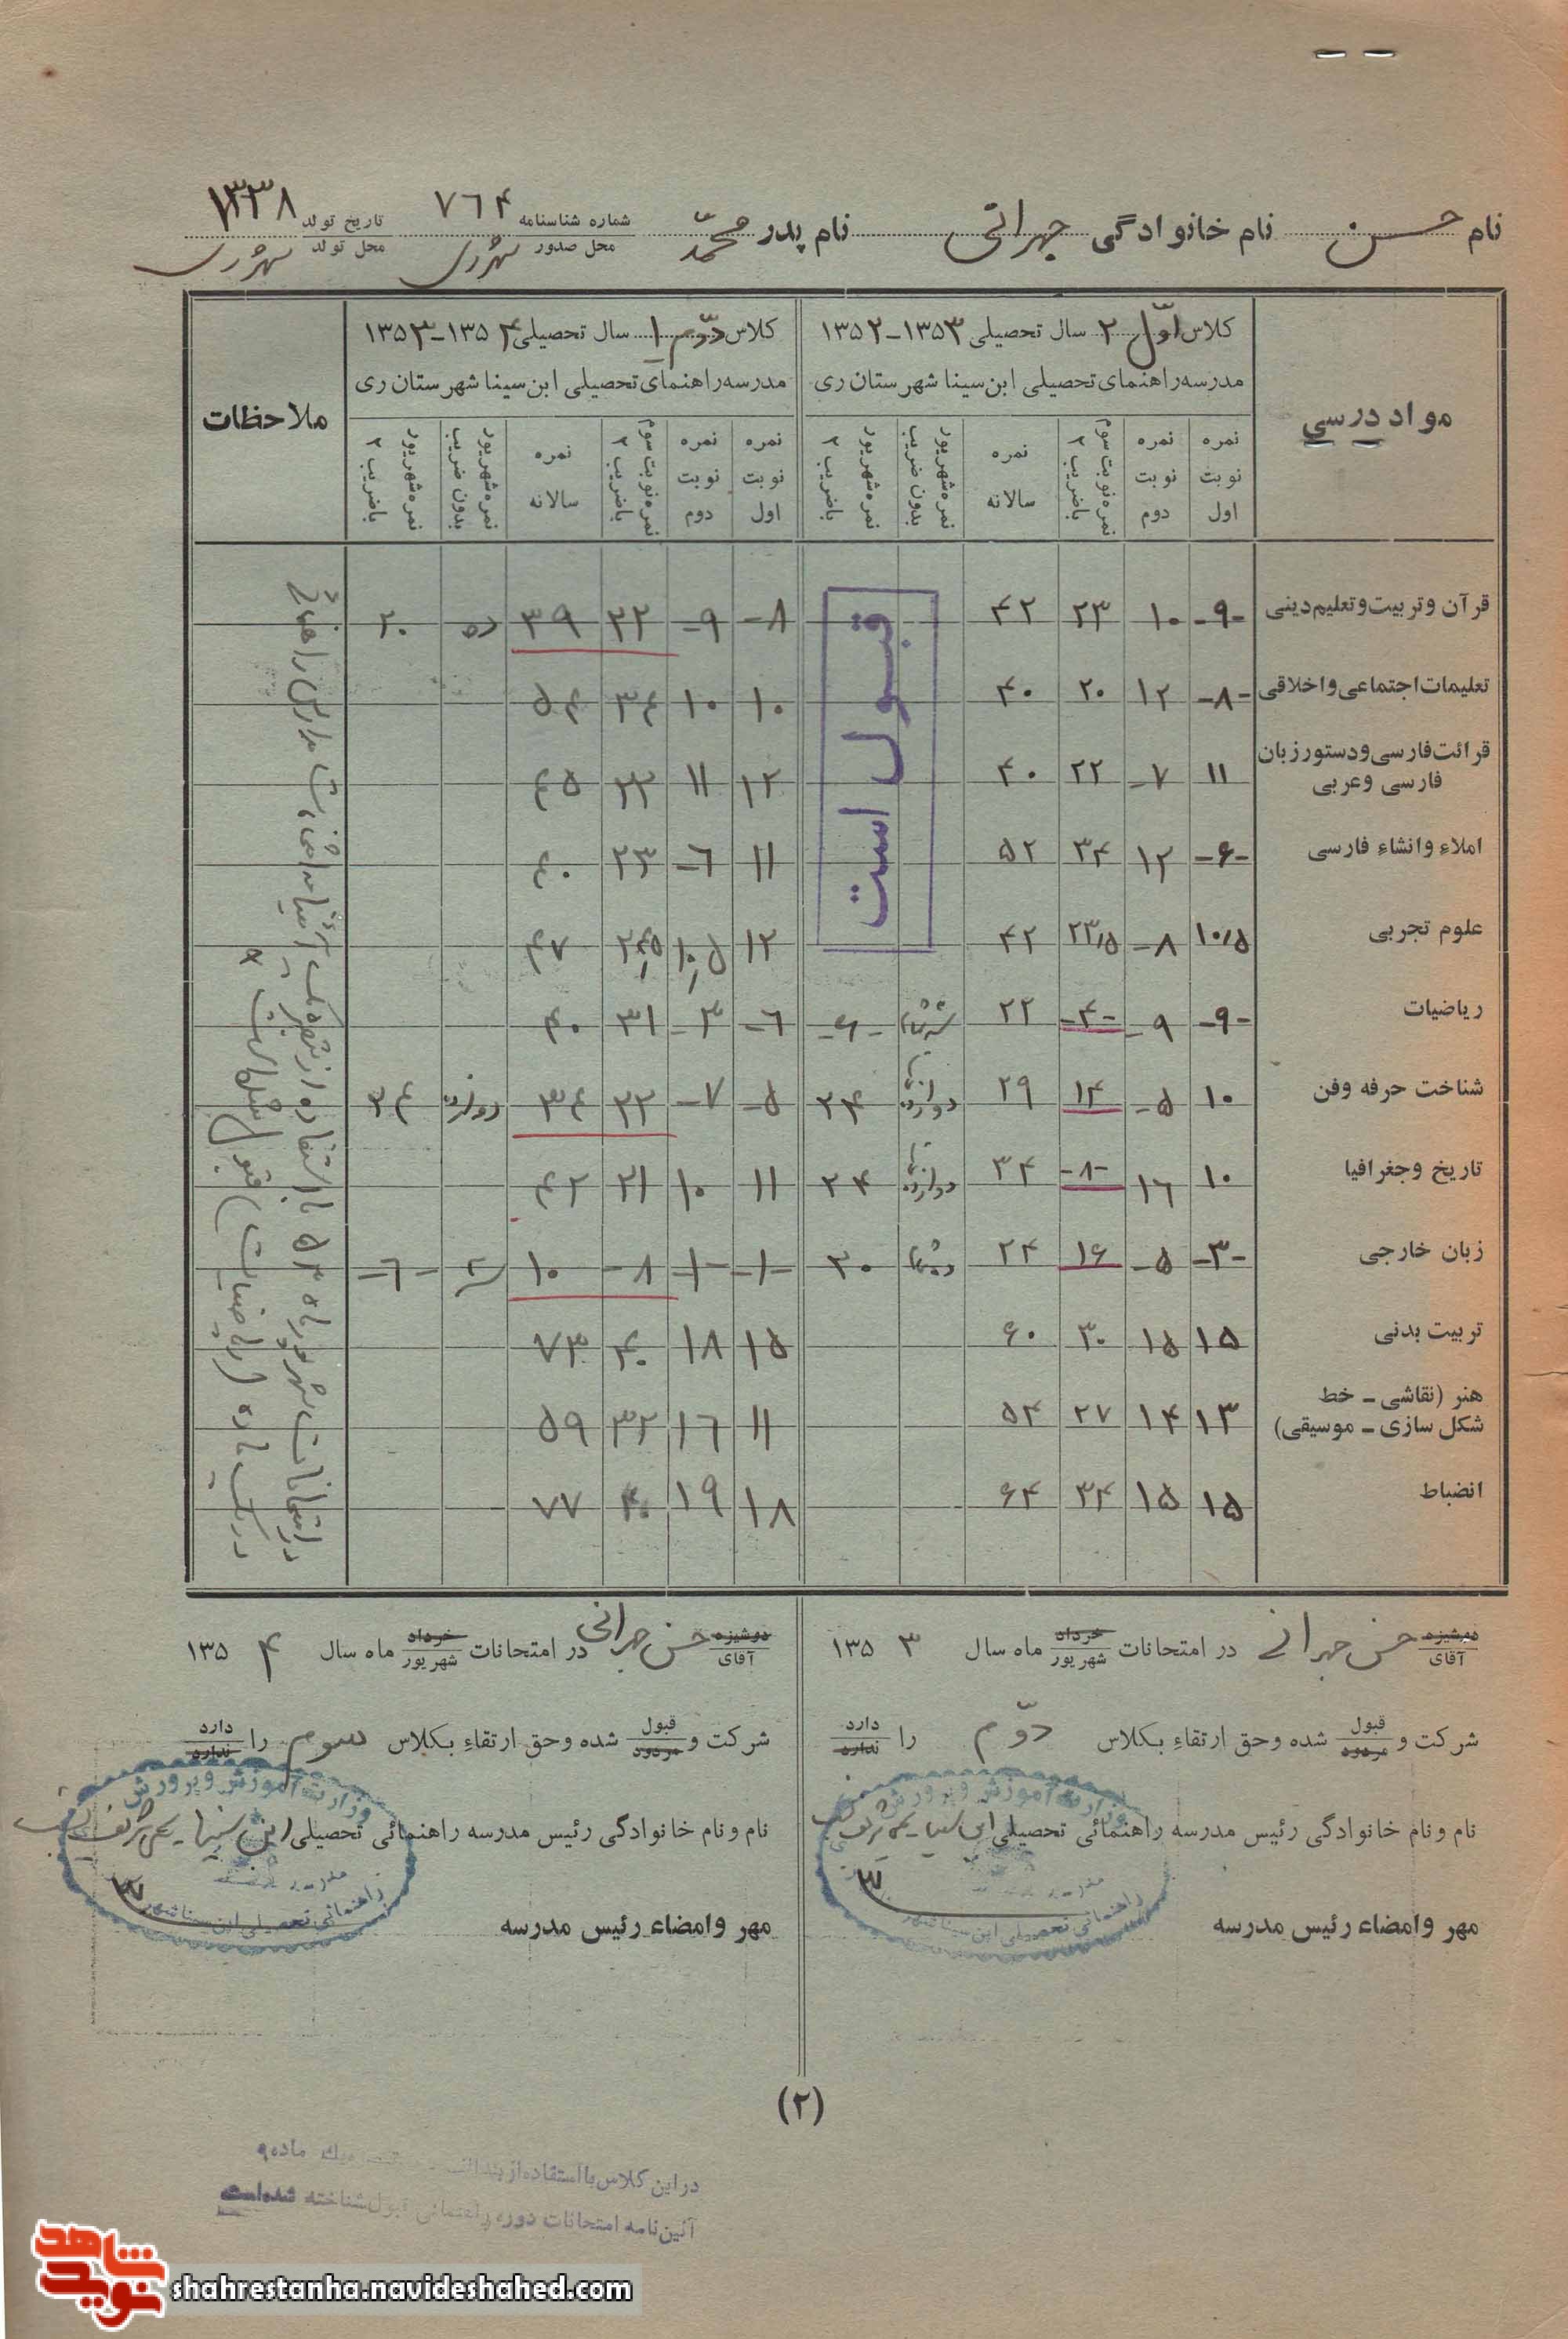 نام حسن نام خانوادگی جهرانی نام پدر محمّد شماره شناسنامه ۷۶۴ تاریخ تولد ۱۳۳۸
محل صدور شهرری محل تولد شهرری
مواد درسی کلاس اوّل ۲ سال تحصیلی ۱۳۵۳-۱۳۵۲ کلاس دوّم ۱ سال تحصیلی ۱۳۵۴-۱۳۵۳ ملاحظات
مدرسه راهنمای تحصیلی ابن سینا شهرستان ری مدرسه راهنمای تحصیلی ابن سینا شهرستان ری
نمره نوبت اول نمره نوبت دوم نمره نوبت سوم باضریب ۲ نمره سالانه نمره شهریور بدون ضریب نمره شهریور باضریب ۲ نمره نوبت اول نمره نوبت دوم نمره نوبت سوم باضریب ۲ نمره سالانه نمره شهریور بدون ضریب نمره شهریور باضریب ۲
قرآن و تربیت و تعلیم دینی -۹- ۱۰ ۲۳ ۴۲ ۸- ۹- ۲۲ ۳۹ ده ۲۰
تعلیمات اجتماعی و اخلاقی -۸- ۱۲ ۲۰ ۴۰ ۱۰ ۱۰ ۳۴ ۵۴
قرائت فارسی و دستور زبان
فارسی و عربی ۱۱ ۷- ۲۲ ۴۰ ۱۲ ۱۱ ۲۲ ۴۵
املاء و انشاء فارسی -۶- ۱۲ ۳۴ ۵۲ ۱۱ ۶- ۲۳ ۴۰
علوم تجربی ۱۰/۵ ۸- ۲۳/۵ ۴۲ ۱۲ ۱۰/۵ ۲۴/۵ ۴۷
ریاضیات -۹- ۹- -۴- ۲۲ -۶- ۶- ۳- ۳۱ ۴۰
شناخت حرفه وفن ۱۰ ۵- ۱۴ ۲۹ دوازده ۲۴ ۵- ۷- ۲۲ ۳۴ دوازده ۲۴
تاریخ و جغرافیا ۱۰ ۱۶ -۸- ۳۴ دوازده ۲۴ ۱۱ ۱۰ ۲۱ ۴۲
زبان خارجی -۳- ۵- ۱۶ ۲۴ ۳۰ -۱- -۱- ۸- ۱۰ سه -۶-
تربیت بدنی ۱۵ ۱۵ ۳۰ ۶۰ ۱۵ ۱۸ ۴۰ ۷۳
هنر (نقاشی - خط
شکل سازی - موسیقی) ۱۳ ۱۴ ۲۷ ۵۴ ۱۱ ۱۶ ۳۲ ۵۹
انضباط ۱۵ ۱۵ ۳۴ ۶۴ ۱۸ ۱۹ ۴۰ ۷۷
قبول است
در امتحانات شهریور ماه ۵۴ با استفاده از تبصره یک
در یک ماده (ریاضیات) قبول شده است
دوشیزه آقای حسن جهرانی در امتحانات خرداد شهریور ماه سال ۱۳۵۳
شرکت و قبول مردود شده وحق ارتقاء بکلاس دوّم را دارد ندارد
نام و نام خانوادگی رئیس مدرسه راهنمائی تحصیلی ابن سینا
مهر وامضاء رئیس مدرسه
دوشیزه آقای حسن جهرانی در امتحانات خرداد شهریور ماه سال ۱۳۵۴
شرکت و قبول مردود شده وحق ارتقاء بکلاس سوم را دارد ندارد
نام و نام خانوادگی رئیس مدرسه راهنمائی تحصیلی ابن سینا
مهر وامضاء رئیس مدرسه
وزارت آموزش و پرورش
مدرسه
راهنمائی تحصیلی ابن سینا شهر
وزارت آموزش و پرورش
مدرسه
راهنمائی تحصیلی ابن سینا شهر
(۲)
در این کلاس با استفاده از یک ماده
آئین نامه امتحانات دوره راهنمائی قبول شناخته شده است
نوید شاهد
shahrestanha.navideshahed.com